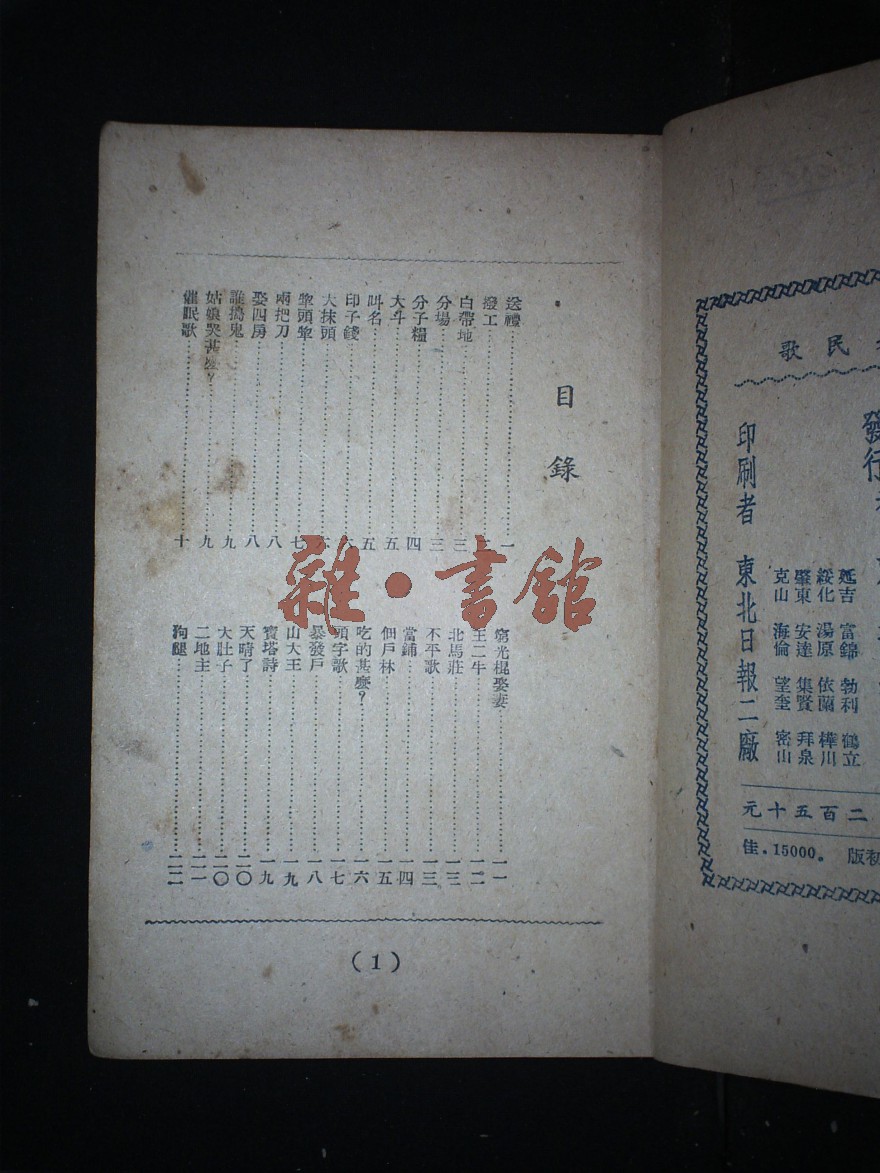 目錄
送禮 一
撥工
白帶地 三
分場 三
分子糧 四
大斗 五
叫名 五
印子錢 六
大抹頭 六
犂頭犂 七
兩把刀 八
娶四房 八
誰搗鬼 九
姑娘哭甚麼？ 九
催眠歌 十
窮光棍娶妻 一一
王二牛 一二
北馬莊 一三
不平歌 一三
當鋪 一四
佃戶林 一五
吃的甚麼？ 一六
頭字歌 一七
暴發戶 一八
山大王 一九
寶塔詩 一九
天晴了 二〇
大肚子 二〇
二地主 二一
狗腿 二二
(1)
雜·書館
民歌
發行
延吉 富錦 勃利 鶴立
綏化 湯原 依蘭 樺川
肇東 安達 集賢 拜泉
克山 海倫 望奎 密山
印刷者 東北日報二廠
二百五十元
初版 佳.15000。